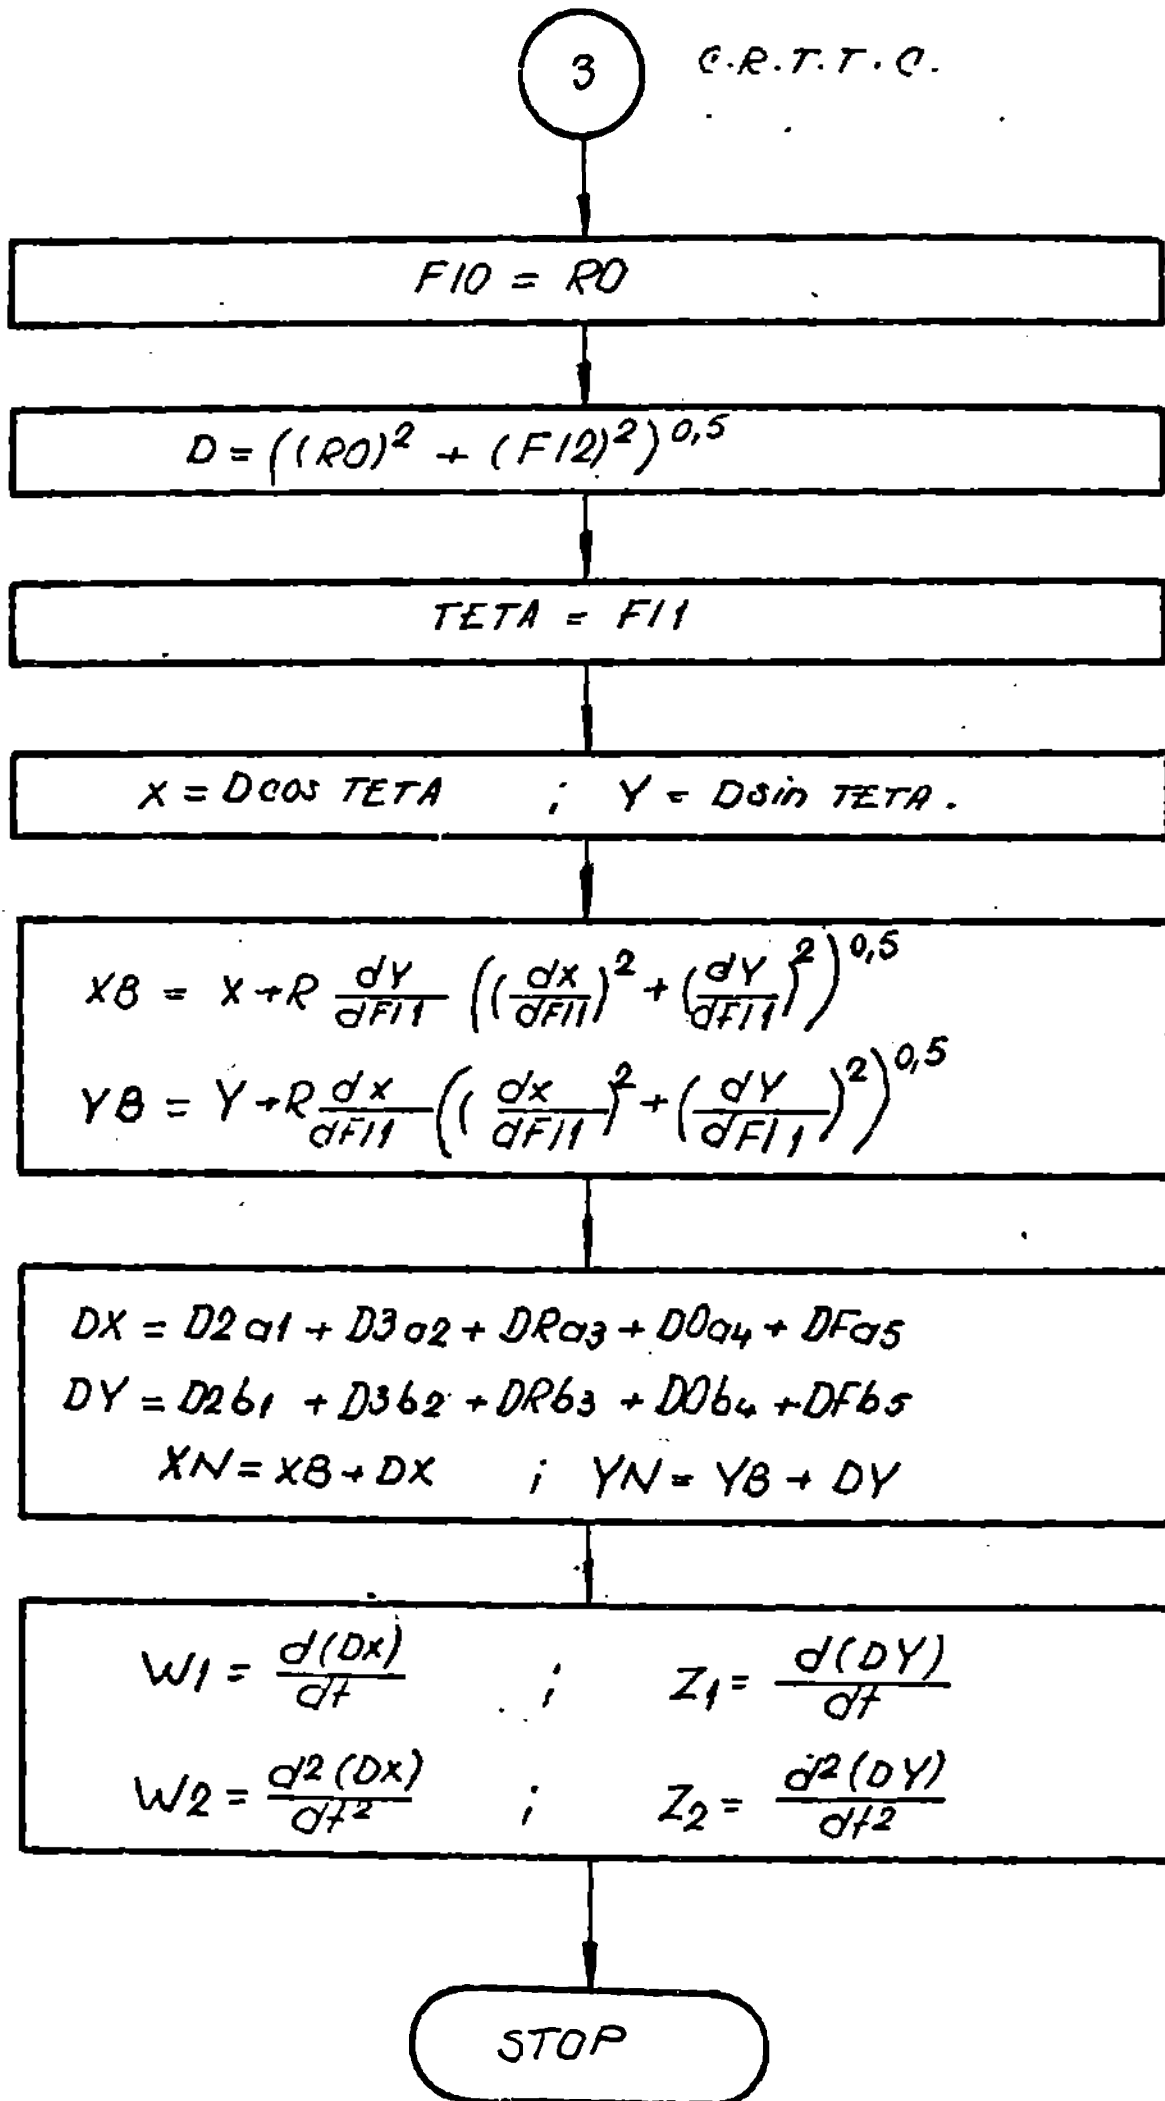 3 C.R.T.T.C.
FI0 = R0
D = ((R0)² + (FI2)²)^0,5
TETA = FI1
X = D cos TETA ; Y = D sin TETA.
XB = X + R dY/dFI1 ((dx/dFI1)² + (dY/dFI1)²)^0,5
YB = Y + R dx/dFI1 ((dx/dFI1)² + (dY/dFI1)²)^0,5
DX = D2a1 + D3a2 + DRa3 + D0a4 + DFa5
DY = D2b1 + D3b2 + DRb3 + D0b4 + DFb5
XN = XB + DX ; YN = YB + DY
W1 = d(Dx)/dt ; Z1 = d(DY)/dt
W2 = d2(Dx)/dt² ; Z2 = d²(DY)/dt2
STOP